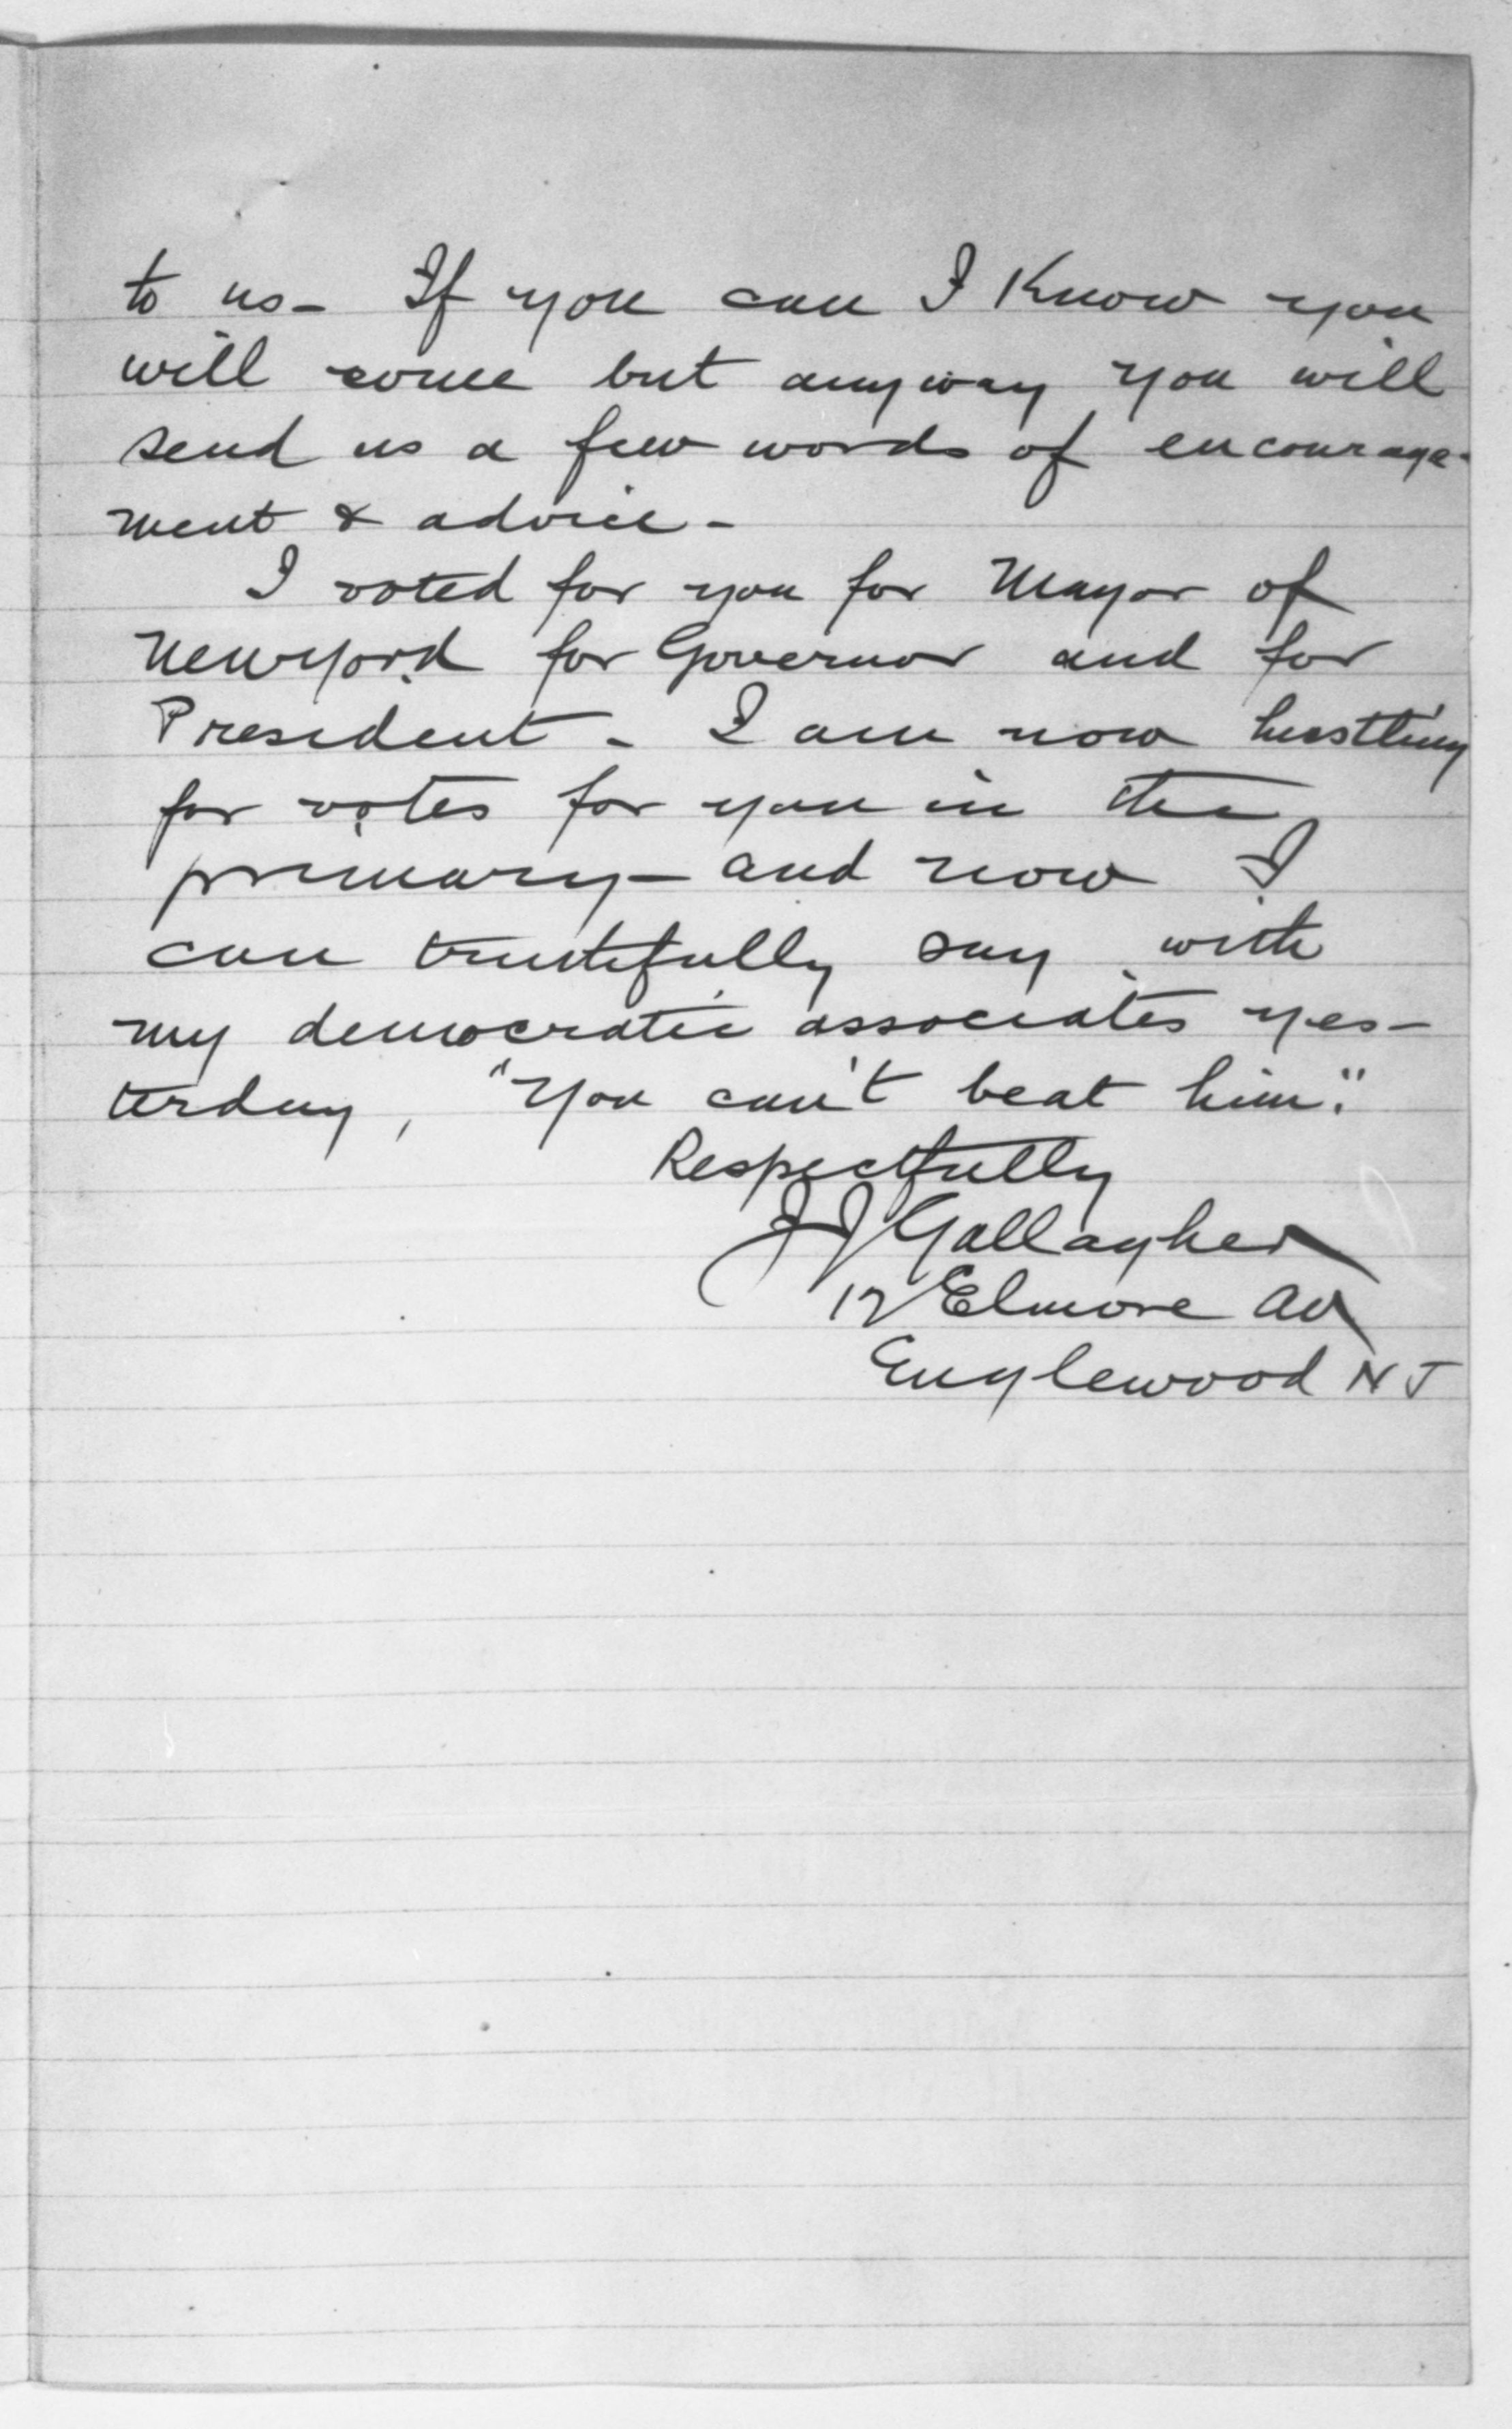 to us - If you can I Know you
will come but anyway you will
send us a few words of encourage-
ment & advice -
I voted for you for Mayor of
New York for Governor and for
President - I am now hustling
for votes for you in the
primary - and now I
can truthfully say with
my democratic associates yes-
terday, "You can't beat him."
Respectfully
JJ Gallagher
12 Elmore Av
Englewood N J